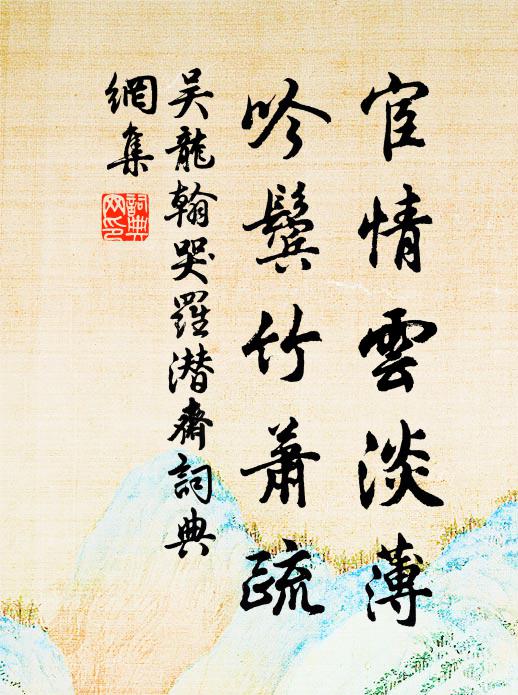 宦情雲淡薄
吟鬢竹蕭疏
吴龍翰哭羅潛齋詞典
網集
詞典
网印